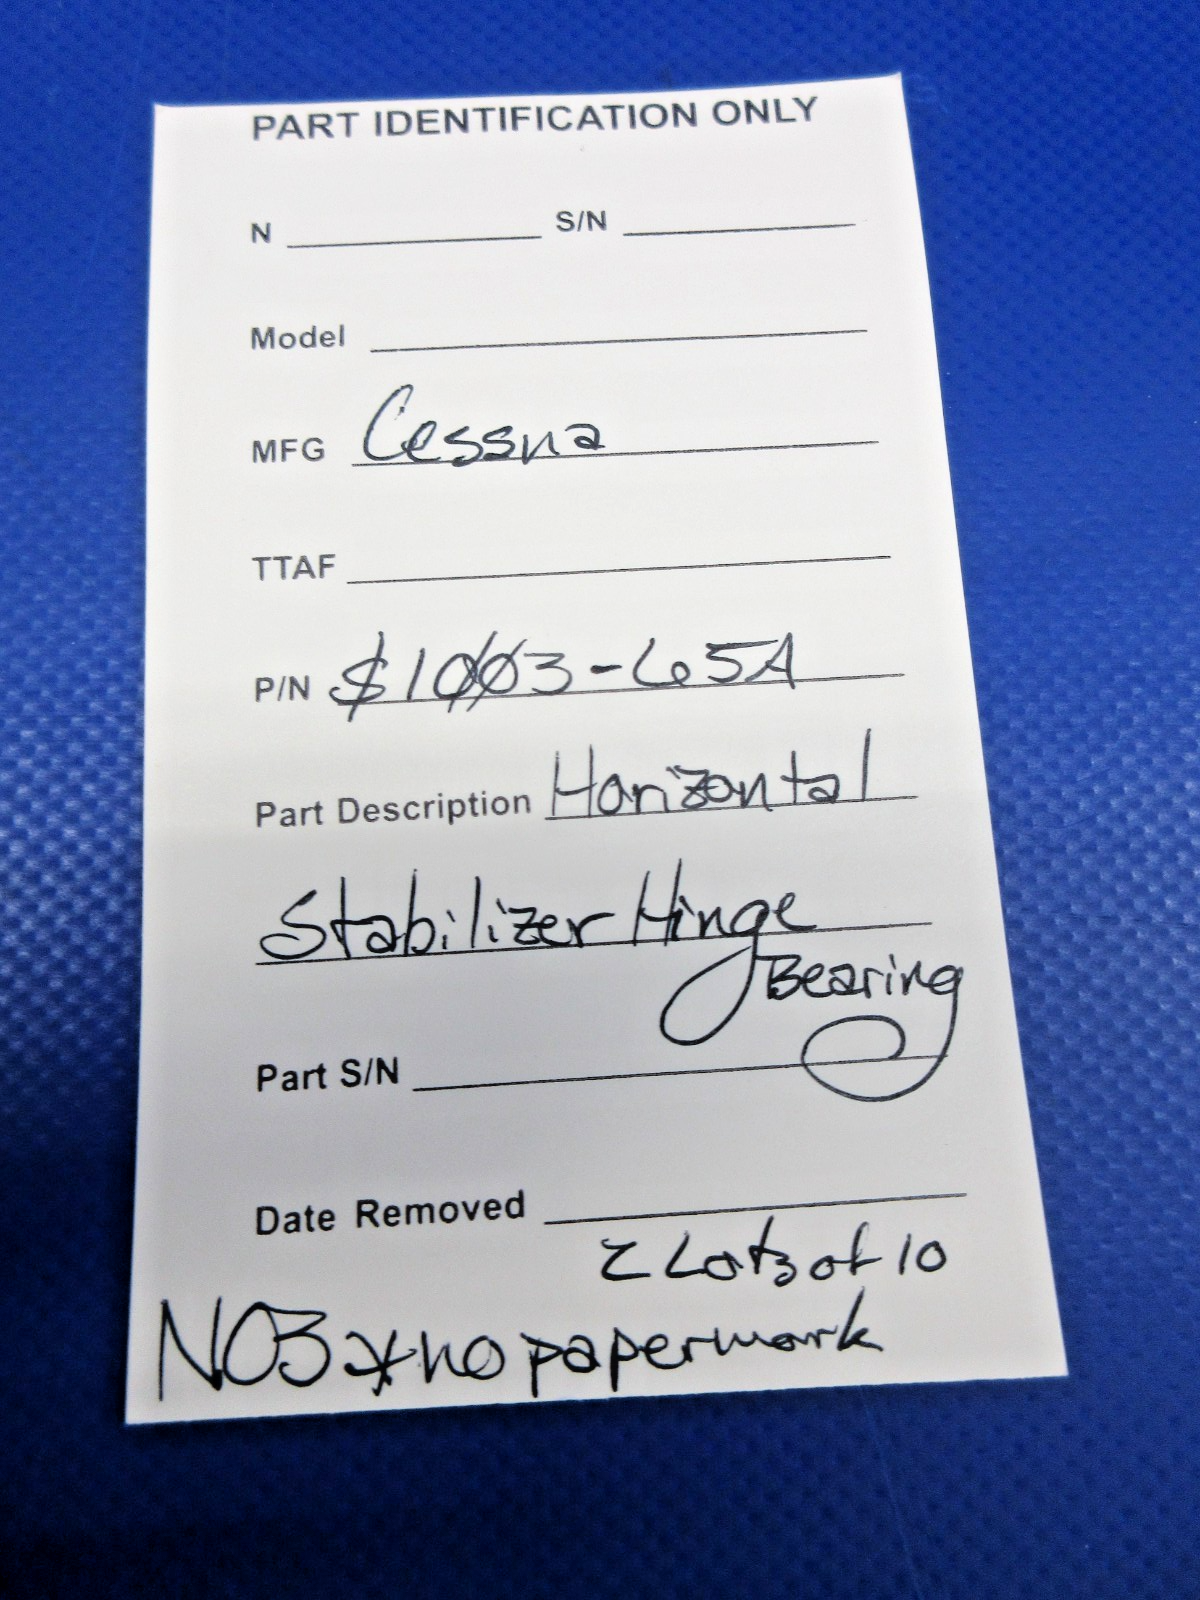 PART IDENTIFICATION ONLY
N S/N
Model
MFG Cessna
TTAF
P/N $1003-65A
Part Description Horizontal
Stabilizer Hinge
Bearing
Part S/N
Date Removed
2 Lots of 10
NOS * no paperwork